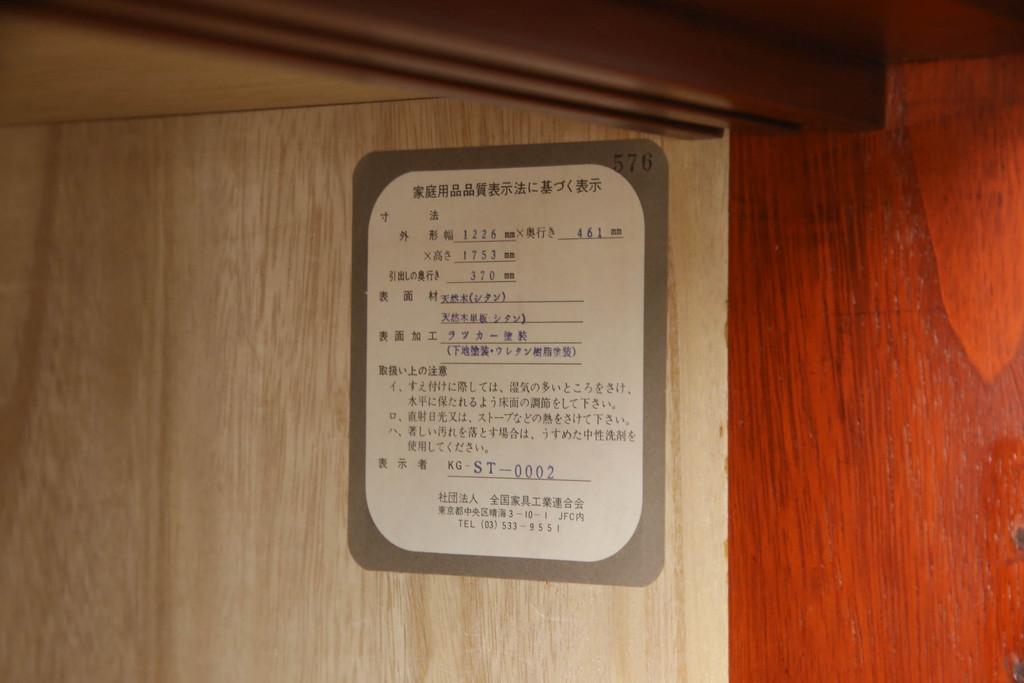 576
家庭用品品質表示法に基づく表示
寸法
外形 幅 1226 mm×奥行き 461 mm
×高さ 1753 mm
引出しの奥行き 370 mm
表面材 天然木(シタン)
天然木単板 シタン)
表面加工 ラツカー塗装
(下地塗装・ウレタン樹脂塗装)
取扱い上の注意
イ、すえ付けに際しては、湿気の多いところをさけ、
水平に保たれるよう床面の調節をして下さい。
ロ、直射日光又は、ストーブなどの熱をさけて下さい。
ハ、著しい汚れを落とす場合は、うすめた中性洗剤を
使用してください。
表示者 KG-ST-0002
社団法人 全国家具工業連合会
東京都中央区晴海3-10-1 JFC内
TEL (03) 533-9551